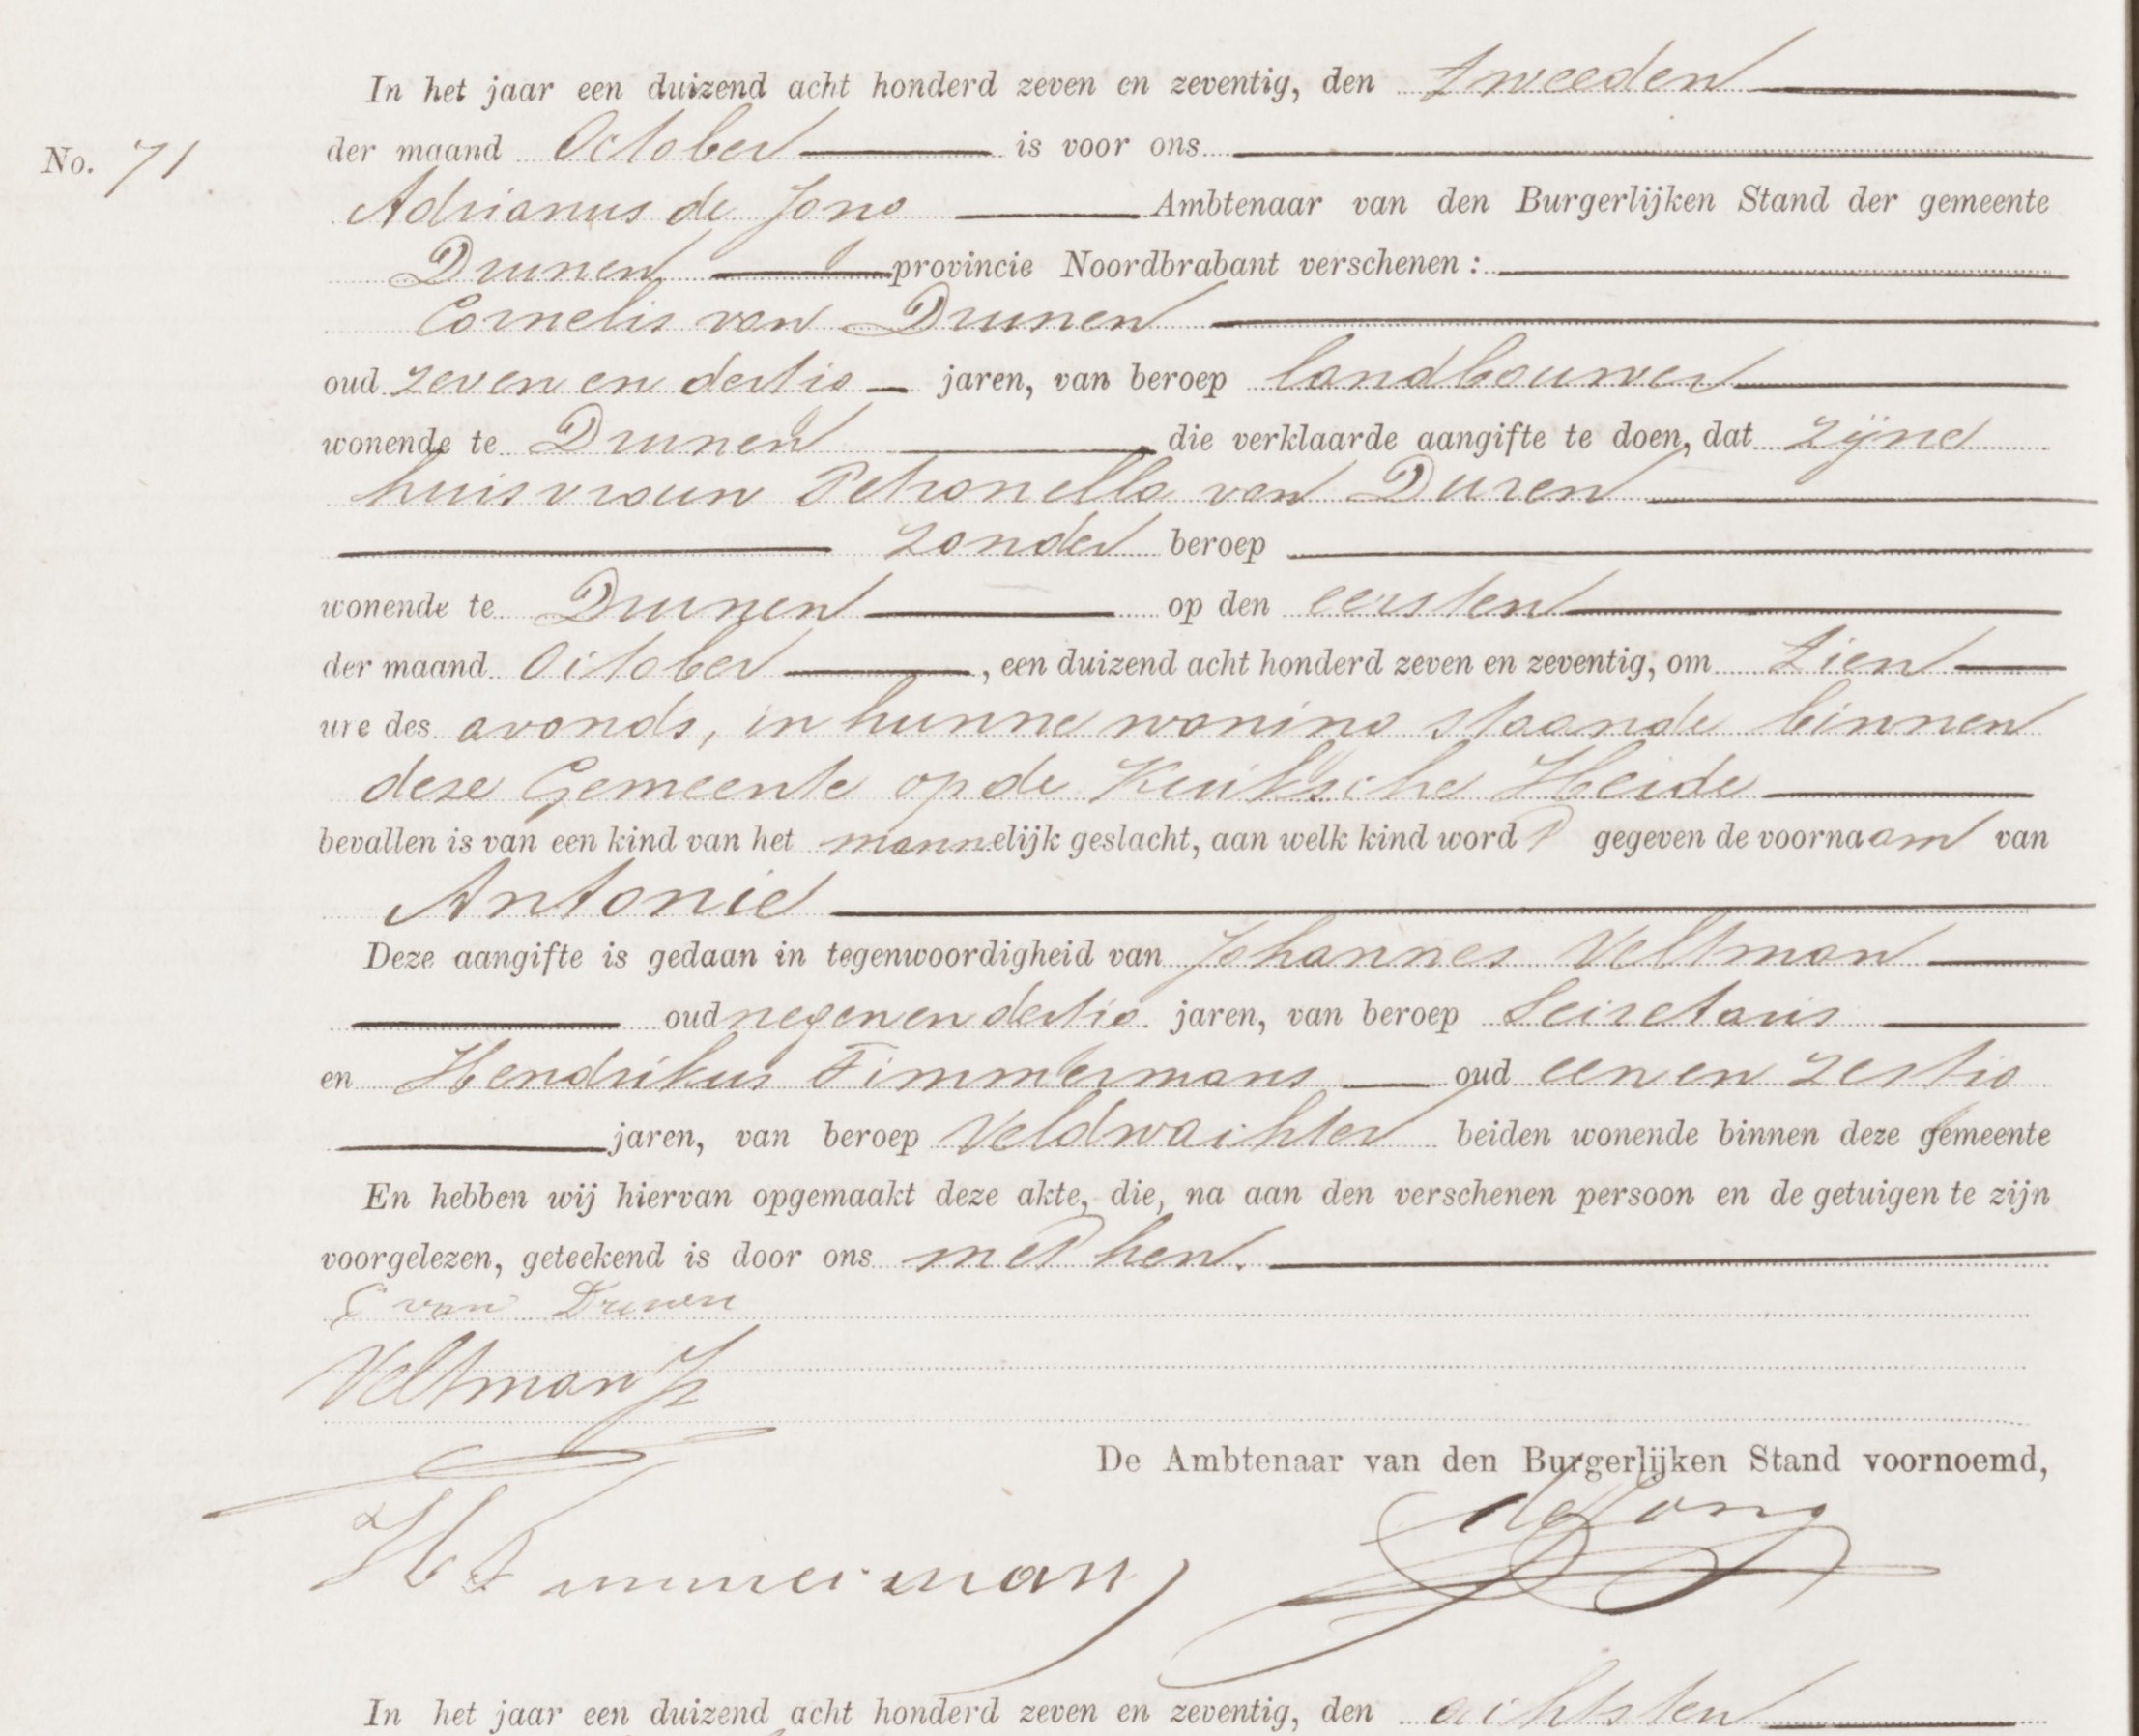 In het jaar een duizend acht honderd zeven en zeventig, den tweeden
No. 71
der maand October is voor ons
Adrianus de Jong Ambtenaar van den Burgerlijken Stand der gemeente
Drunen provincie Noordbrabant verschenen :
Cornelis van Drunen
oud zeven en dertig jaren, van beroep landbouwer
wonende te Drunen die verklaarde aangifte te doen, dat zijne
huisvrouw Petronella van Duren
zonder beroep
wonende te Drunen op den eersten
der maand October , een duizend acht honderd zeven en zeventig, om tien
ure des avonds, in hunne woning staande binnen
deze Gemeente op de Heide
bevallen is van een kind van het mannelijk geslacht, aan welk kind wordt gegeven de voornaam van
Antonie
Deze aangifte is gedaan in tegenwoordigheid van Johannes Veltman
oud negen en dertig jaren, van beroep Secretaris
en Hendrikus Timmermans oud een en zestig
jaren, van beroep Veldwachter beiden wonende binnen deze gemeente
En hebben wij hiervan opgemaakt deze akte, die, na aan den verschenen persoon en de getuigen te zijn
voorgelezen, geteekend is door ons met hen.
C van Drunen
Veltman Jz
De Ambtenaar van den Burgerlijken Stand voornoemd,
de Jong
H Timmermans
In het jaar een duizend acht honderd zeven en zeventig, den achtsten